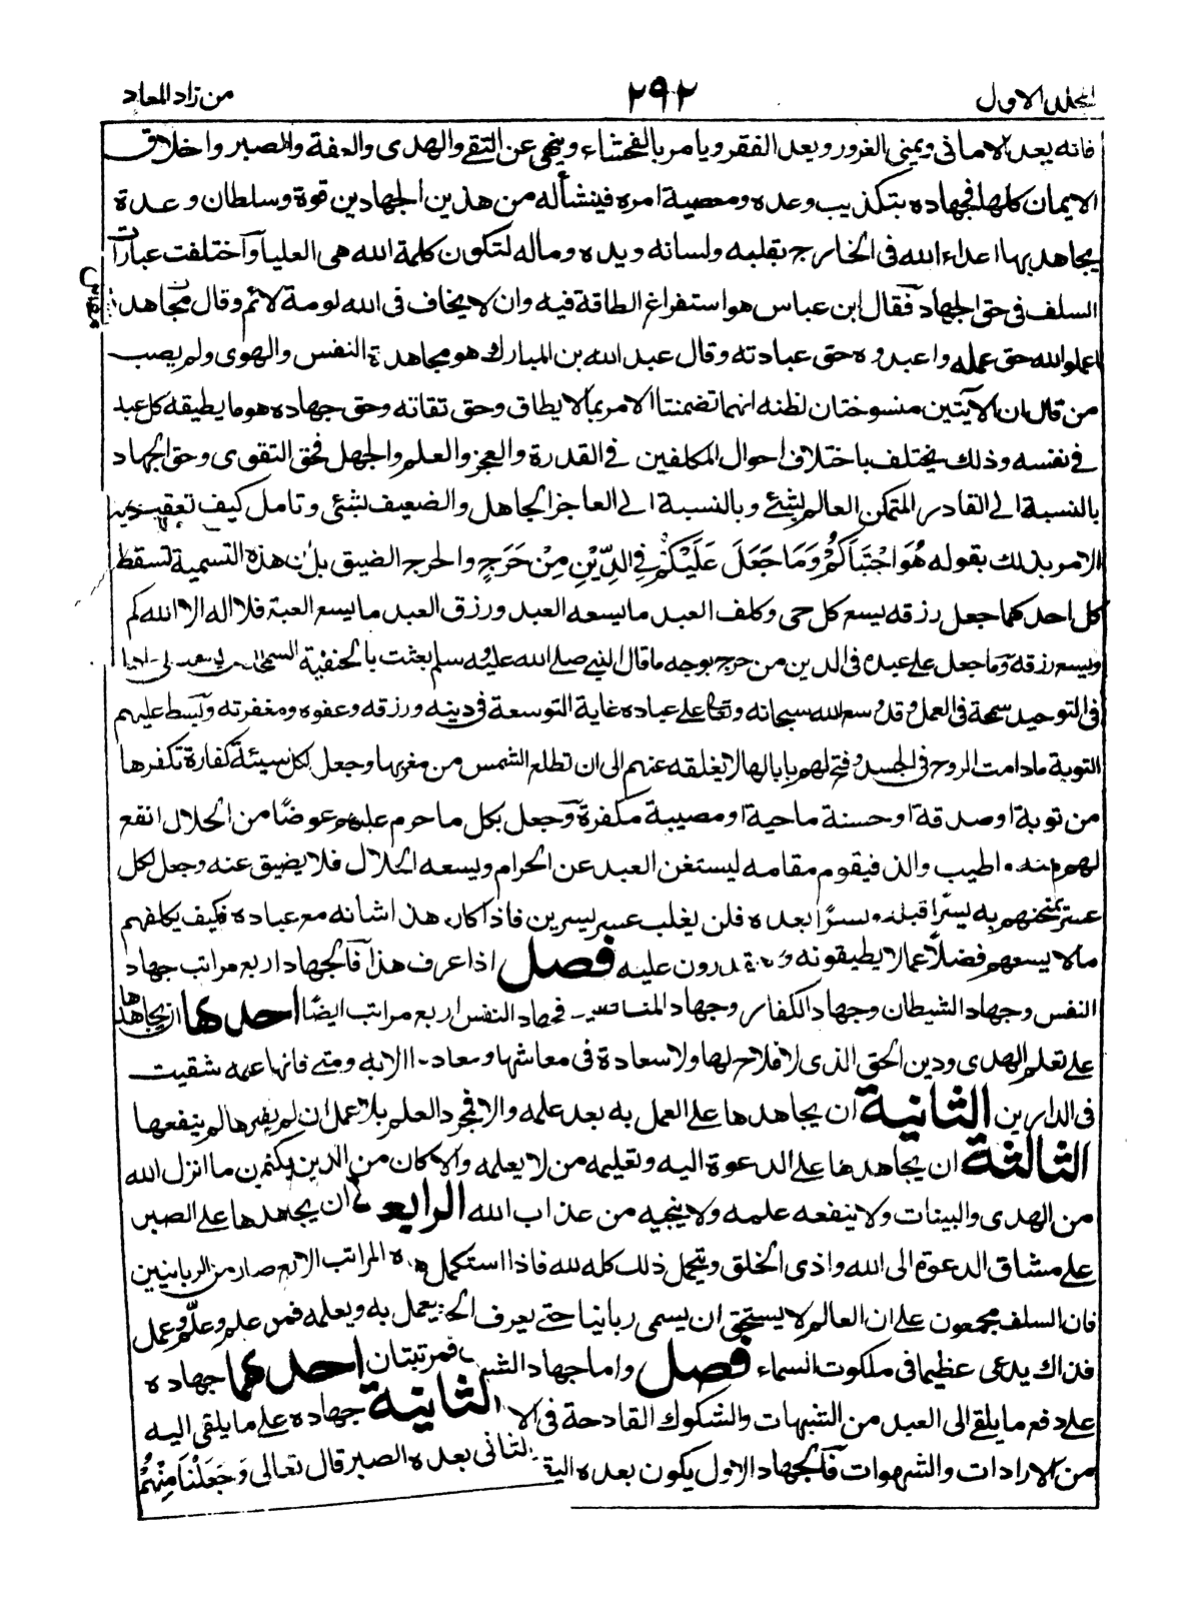 المجلد الاول
٢٩٢
من زاد المعاد
فانه يعد الامانى ويمنى الغرور ويعد الفقر ويامر بالفحشاء وينهى عن التقى والهدى والعفة والصبر واخلاق
الايمان كلها فجهاده بتكذيب وعده ومعصية امره فينشأ له من هذين الجهادين قوة وسلطان وعدة
يجاهد بها اعداء الله فى الخارج بقلبه ولسانه ويده وماله لتكون كلمة الله هى العليا واختلفت عبارات
السلف فى حق الجهاد فقال ابن عباس هو استفراغ الطاقة فيه وان لا يخاف فى الله لومة لائم وقال مجاهد
اعملوا لله حق عمله واعبدوه حق عبادته وقال عبد الله بن المبارك هو مجاهدة النفس والهوى ولم يصب
من قال ان الآيتين منسوختان لظنه انهما تضمنتا الامر بما لا يطاق وحق تقاته وحق جهاده هو ما يطيقه كل عبد
فى نفسه وذلك يختلف باختلاف احوال المكلفين فى القدرة والعجز والعلم والجهل فحق التقوى وحق الجهاد
بالنسبة الى القادر المتمكن العالم شئ وبالنسبة الى العاجز الجاهل والضعيف شئ وتامل كيف تعقيب
الامر بذلك بقوله هُوَ اجْتَبَاكُمْ وَمَا جَعَلَ عَلَيْكُمْ فِى الدِّيْنِ مِنْ حَرَجٍ والحرج الضيق بل ان هذه التسمية تسقط
كل احد كما جعل رزقه يسع كل حى وكلف العبد ما يسعه العبد ورزق العبد ما يسع العبد فلا اله الا الله كم
ويسع رزقه وما جعل على عبده فى الدين من حرج بوجه ما قال النبى صلى الله عليه وسلم بعثت بالحنفية السمحة
فى التوحيد سمحة فى العمل وقد وسع الله سبحانه وتعالى على عباده غاية التوسعة فى دينه ورزقه وعفوه ومغفرته وبسط عليهم
التوبة ما دامت الروح فى الجسد وفتح لهم بابا لها لا يغلقه عنهم الى ان تطلع الشمس من مغربها وجعل لكل سيئة كفارة تكفرها
من توبة او صدقة او حسنة ماحية او مصيبة مكفرة وجعل بكل ما حرم عليهم عوضًا من الحلال انفع
لهم منه واطيب والذ فيقوم مقامه ليستغن العبد عن الحرام ويسعه الحلال فلا يضيق عنه وجعل لكل
عسر يمتحنهم به يسرًا قبله ويسرًا بعده فلن يغلب عسر يسرين فاذا كان هذا شانه مع عباده فكيف يكلفهم
ما لا يسعهم فضلًا عما لا يطيقونه ويقدرون عليه فصل اذا عرف هذا فالجهاد اربع مراتب جهاد
النفس وجهاد الشيطان وجهاد الكفار وجهاد المنافقين فجهاد النفس اربع مراتب ايضًا احدها ان يجاهدها
على تعلم الهدى ودين الحق الذى لا فلاح لها ولا سعادة فى معاشها ومعادها الا به ومتى فاتها علمه شقيت
فى الدارين الثانية ان يجاهدها على العمل به بعد علمه والا فمجرد العلم بلا عمل ان لم يضرها لم ينفعها
الثالثة ان يجاهدها على الدعوة اليه وتعليمه من لا يعلمه والا كان من الذين يكتمون ما انزل الله
من الهدى والبينات ولا ينفعه علمه ولا ينجيه من عذاب الله الرابعة ان يجاهدها على الصبر
على مشاق الدعوة الى الله واذى الخلق ويتحمل ذلك كله لله فاذا استكمل هذه المراتب الاربع صار من الربانيين
فان السلف مجمعون على ان العالم لا يستحق ان يسمى ربانيا حتى يعرف الحق ويعمل به ويعلمه فمن علم وعلّم وعمل
فذاك يدعى عظيما فى ملكوت السماء فصل واما جهاد الشيطان فمرتبتان احدهما جهاده
على دفع ما يلقى الى العبد من الشبهات والشكوك القادحة فى الا الثانية جهاده على ما يلقى اليه
من الارادات والشهوات فالجهاد الاول يكون بعده اليقين والثانى بعده الصبر قال تعالى وَجَعَلْنَا مِنْهُمْ